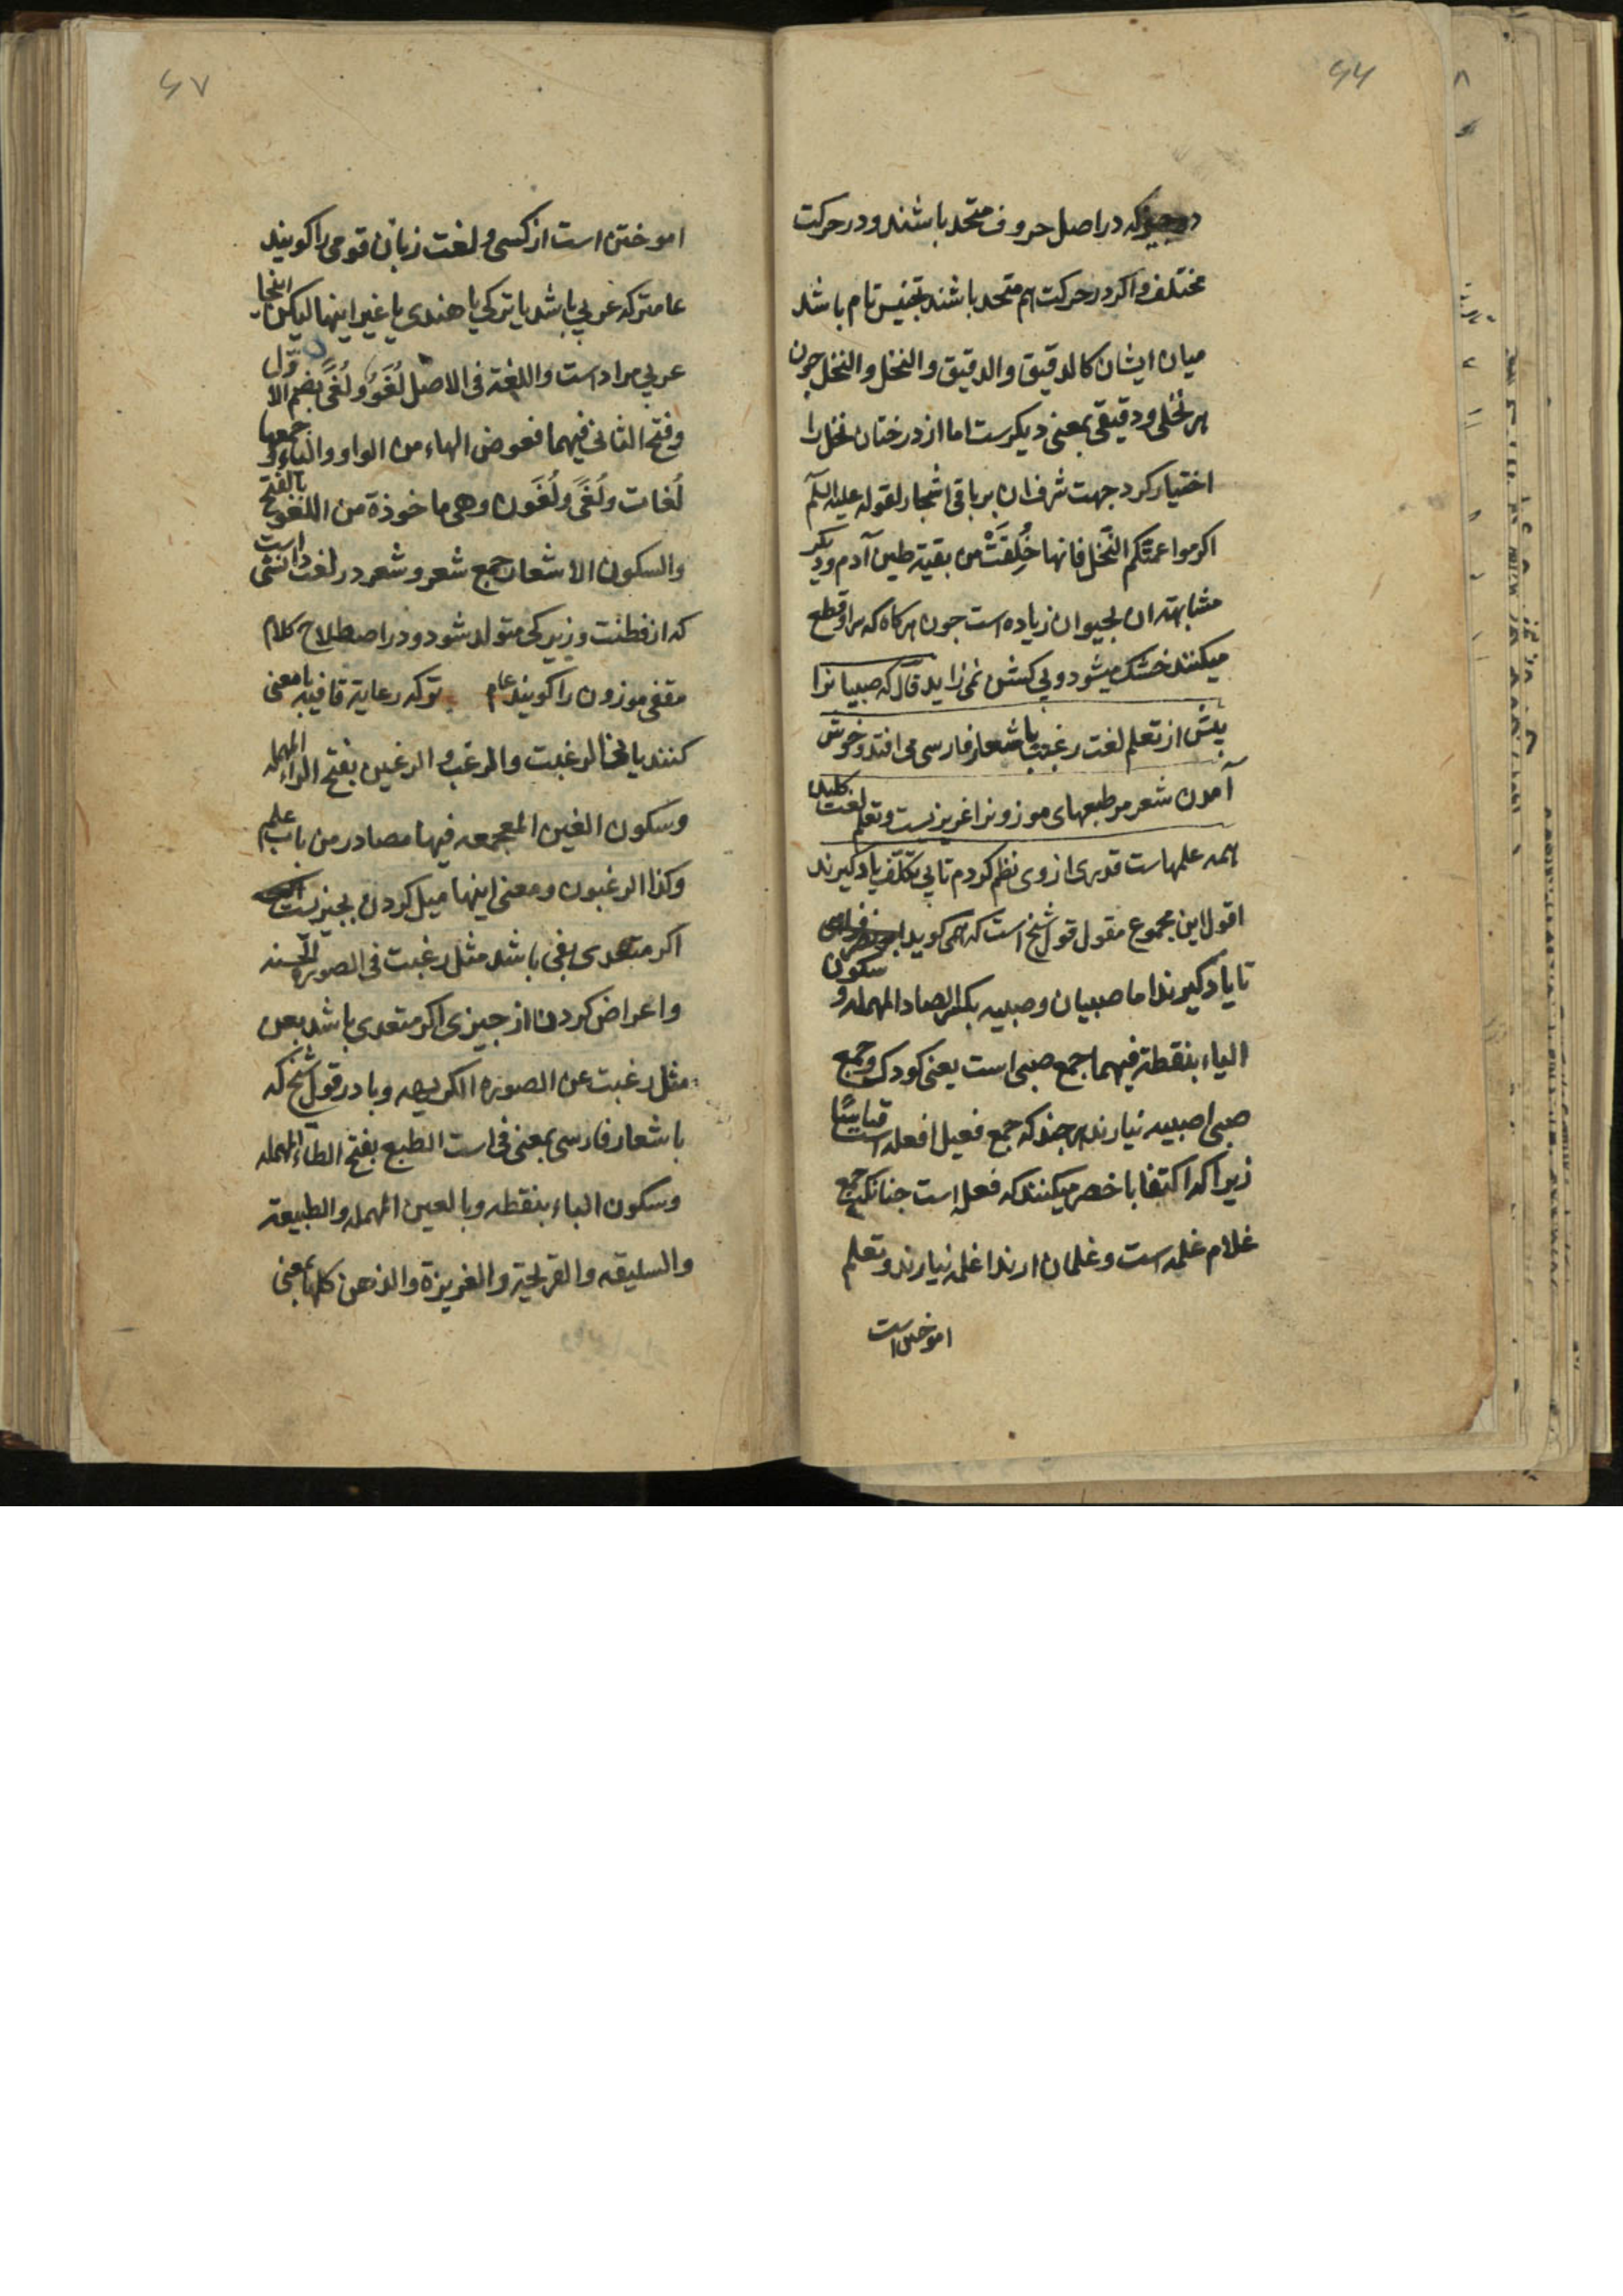 ۶۶
که در اصل حروف متحد باشند و در حرکت
مختلف و اکر در حرکت هم متحد باشند تجنیس تام باشد
میان ایشان کالدقیق والدقیق والنخل والنخل چون
هر نخلی و دقیقی بمعنی دیکرست اما از درختان نخل را
اختیار کرد جهت شرف ان بر باقی اشجار لقوله علیه السلم
اکرموا عمتکم النخل فانها خُلِقَتْ من بقیة طین آدم و دیکر
مشابهت ان بحیوان زیاده است جون هرکاه که سر او قطع
میکنند خشک میشود و بی کشن نمی زاید قال که صبیانرا
پیش از تعلم لغت رغبت باشعار فارسی می افتد و خوش
آمدن شعر مر طبعهای موزونرا غریزیست و تعلم لغت کلید
همه علمهاست قدری از وی نظم کردم تا بی تکلّف یاد کیرند
اقول این مجموع مقول قول شیخ است که همی کوید ابو نصر فراهی
تا یاد کیرند اما صبیان و صبیه بکسر الصاد المهمله و سکون
الیاء بنقطة فیهما جمع صبی است یعنی کودک و جمع
صبی اصبیه نیارند هر جند که جمع فعیل افعله است قیاسًا
زیرا که اکتفا باخصر میکنند که فعله است جنانکه جمع
غلام غلمه است و غلمان ارند اغلمه نیارند و تعلم
اموختن است
۶۷
اموختن است از کسی و لغت زبان قومی را کویند
عامتر که عربی باشد یا ترکی یا هندی یا غیر اینها لیکن اینجا
عربی مراد است واللغة فی الاصل لُغَوٌ و لُغَیٌ بضم الاوّل
وفتح الثانی فیهما فعوض الهاء من الواو والیاء و جمعها
لُغات ولُغًی ولُغَون وهی ماخوذة من اللغو بالفتح
والسکون الاشعار جمع شعر و شعر در لغت دانستنی است
که از فطنت و زیرکی متولد شود و در اصطلاح کلام
مقفی موزون را کویند عام تر که رعایة قافیه با معنی
کنند یا نی الرغبت والرغب والرغبن بفتح الراء المهمله
وسکون الغین المعجمه فیها مصادر من باب علم
وکذا الرغبون و معنی اینها میل کردن بچیزیست
اکر متعدی بفی باشد مثل رغبت فی الصورة الحسنه
و اعراض کردن از جیزی اکر متعدی باشد بعن
مثل رغبت عن الصورة الکریهه و با در قول شیخ که
باشعار فارسی بمعنی فی است الطبع بفتح الطاء المهمله
وسکون الباء بنقطه وبالعین المهمله والطبیعة
والسلیقه والقریحة والغریزة والذهن کلها بمعنی